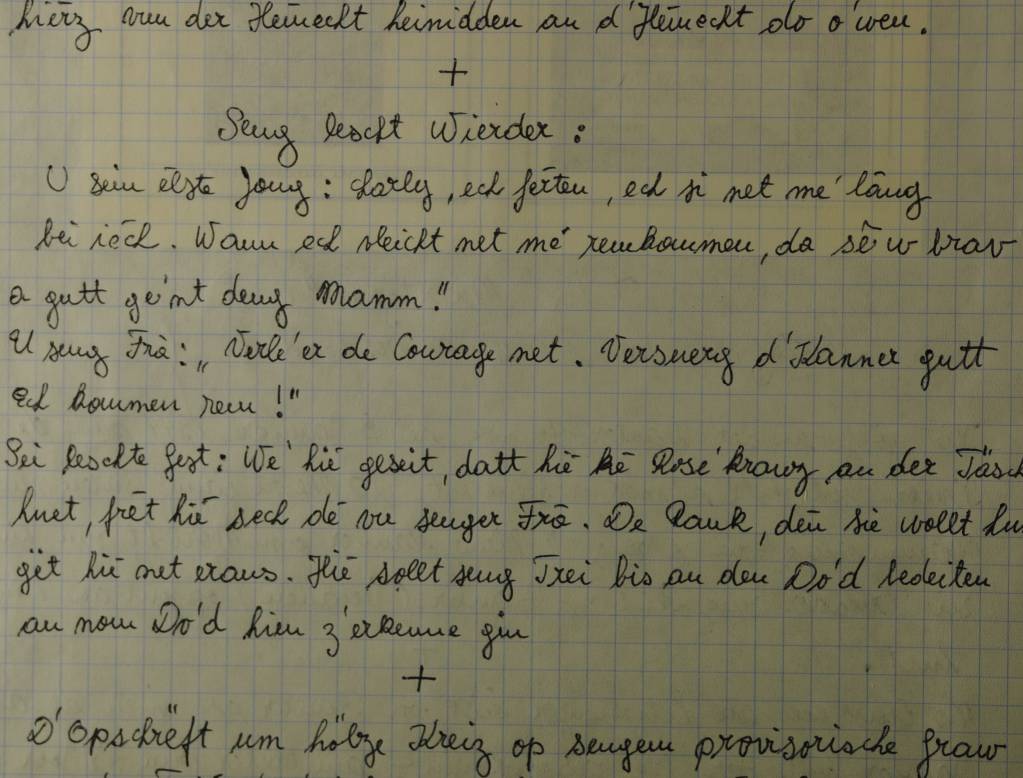 hierz vun der Hemecht heinidden an d'Hemecht do o'wen.
+
Seng lescht Wierder :
U sein elste Jong : Charly, ech ferten, ech si net me' lāng
bei iech. Wann ech vleicht net mé remkommen, da sê w brav
a gutt ge'nt deng Mamm."
U seng Frā : „Verlé'er de Courage net. Versuerg d'Kanner gutt
Ech kommen rem !"
Sei leschte Gest : We' hie geseit, datt hie kē Rosé'kranz an der Täsch
huet, frēt hie sech dē vu senger Frā. De Rank, den sie wollt hu
gët hie net eraus. Hie sollt seng Trei bis an den Do'd bedeiten
an nom Do'd hien z'erkenne gin
+
D'Opschrëft um hölze Kreiz op sengem provisorische Graw